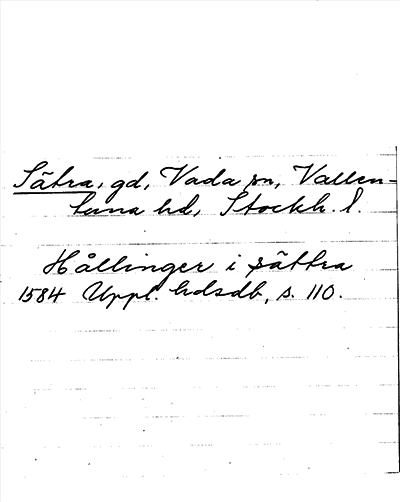 Sätra, gd, Vada sn, Vallen-
tuna hd, Stockh. l.
Hållinger i sättra
1584 Uppl. hdsdb, s. 110.